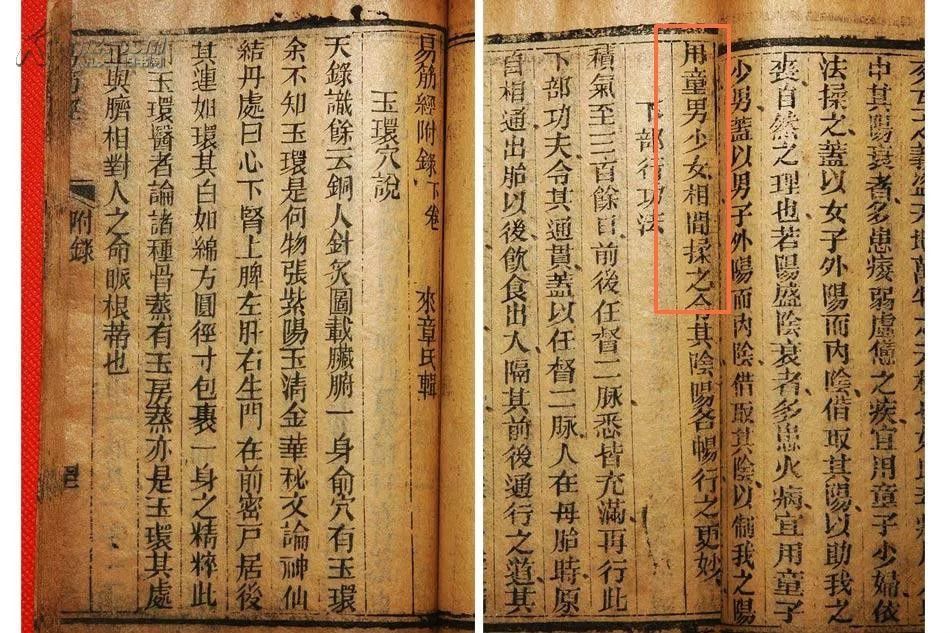 中其陽衰者多患痿弱虛憊之疾宜用童子少婦依
法揉之蓋以女子外陽而內陰借取其陽以助我之
衰自然之理也若陽盛陰衰者多患火病宜用童子
少男蓋以男子外陽而內陰借取其陰以制我之陽
用童男少女相間揉之令其陰陽各暢行之更妙
下部行功法
積氣至三百餘日前後任督二脈悉皆充滿再行此
下部功夫令其通貫蓋以任督二脈人在母胎時原
自相通出胎以後飲食出入隔其前後通行之道其
易筋經附錄下卷 來章氏輯
玉環穴說
天錄識餘云銅人針炙圖載臟腑一身俞穴有玉環
余不知玉環是何物張紫陽玉清金華秘文論神仙
結丹處曰心下腎上脾左肝右生門在前密戸居後
其連如環其白如綿方圓徑寸包裹一身之精粹此
卽玉環醫者論諸種骨蒸有玉房蒸亦是玉環其處
正與臍相對人之命脈根蒂也
附錄